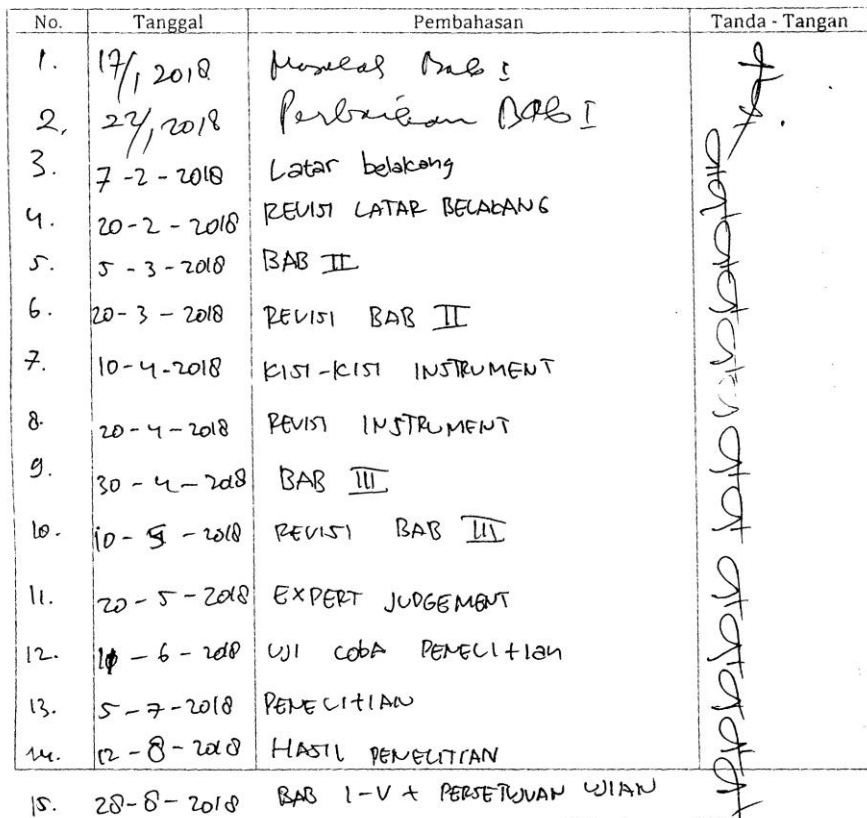 No. Tanggal Pembahasan Tanda - Tangan
1. 17/1 2018 Bab I
2. 22/1 2018 Perbaikan BAB I
3. 7-2-2018 Latar belakang
4. 20-2-2018 REVISI LATAR BELAKANG
5. 5-3-2018 BAB II
6. 20-3-2018 REVISI BAB II
7. 10-4-2018 KISI-KISI INSTRUMENT
8. 20-4-2018 REVISI INSTRUMENT
9. 30-4-2018 BAB III
10. 10-5-2018 REVISI BAB III
11. 20-5-2018 EXPERT JUDGEMENT
12. -6-2018 UJI CobA PENELITIan
13. 5-7-2018 PENELITIAN
14. 12-8-2018 HASIL PENELITIAN
15. 28-8-2018 BAB I-V + PERSETUJUAN UJIAN